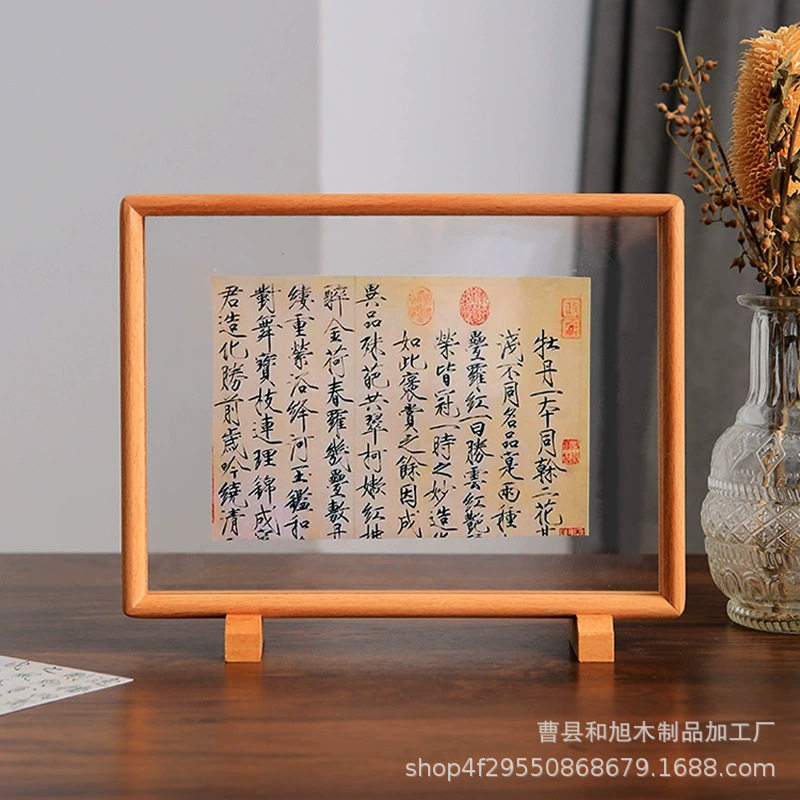 牡丹一本同幹二花其
淺不同名品寔兩種
疊羅紅一曰勝雲紅艷
榮皆冠一時之妙造化
如此褒賞之餘因成
異品殊葩共翠柯嫩紅拂
醉金荷春羅幾疊敷丹
縷重縈浴絳河玉鑑和
對舞寶枝連理錦成
君造化勝前歲吟繞清
曹县和旭木制品加工厂
shop4f29550868679.1688.com